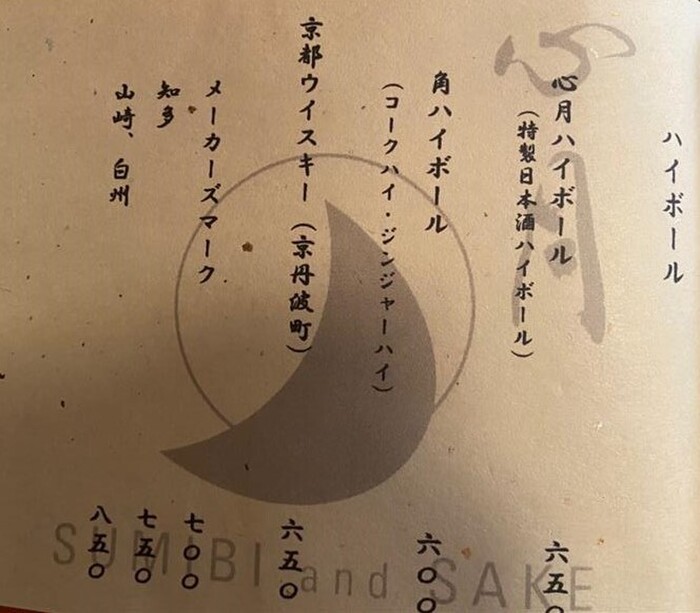 ハイボール
心月ハイボール 六五〇
（特製日本酒ハイボール）
角ハイボール 六〇〇
（コークハイ・ジンジャーハイ）
京都ウイスキー（京丹波町） 六五〇
メーカーズマーク 七〇〇
知多 七五〇
山崎、白州 八五〇
心月
SUMIBI and SAKE